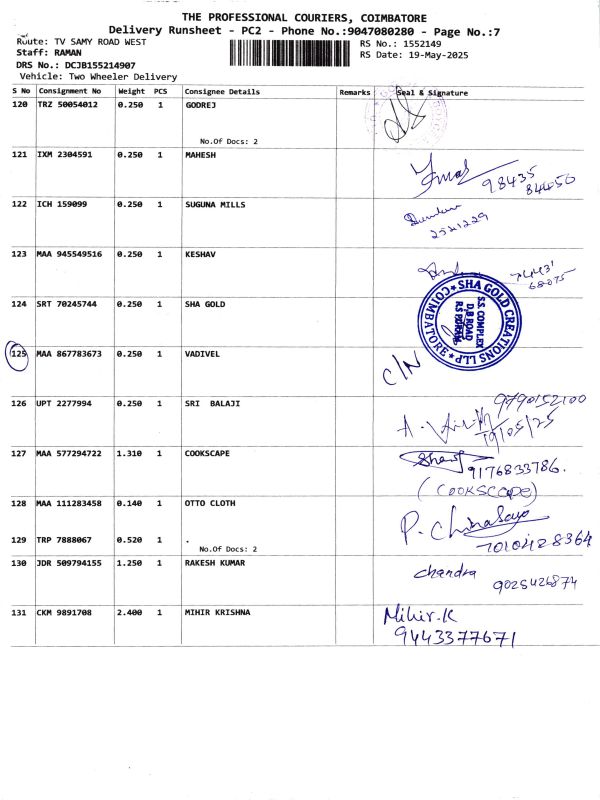 THE PROFESSIONAL COURIERS, COIMBATORE
Delivery Runsheet - PC2 - Phone No.:9047080280 - Page No.:7
Route: TV SAMY ROAD WEST
RS No.: 1552149
Staff: RAMAN
RS Date: 19-May-2025
DRS No.: DCJB155214907
Vehicle: Two Wheeler Delivery
S No Consignment No Weight PCS Consignee Details Remarks Seal & Signature
120 TRZ 50054012 0.250 1 GODREJ
No.Of Docs: 2
121 IXM 2304591 0.250 1 MAHESH
98435
84450
122 ICH 159099 0.250 1 SUGUNA MILLS
2521229
123 MAA 945549516 0.250 1 KESHAV
68075
124 SRT 70245744 0.250 1 SHA GOLD
SHA GOLD CREATIONS LLP
COIMBATORE
S.S. COMPLEX
D.B ROAD
R.S PURAM
125 MAA 867783673 0.250 1 VADIVEL
C/N
126 UPT 2277994 0.250 1 SRI BALAJI
9790152100
19/05/25
127 MAA 577294722 1.310 1 COOKSCAPE
9176833786.
(COOKSCAPE)
128 MAA 111283458 0.140 1 OTTO CLOTH
7010428364
129 TRP 7888067 0.520 1 .
No.Of Docs: 2
130 JDR 509794155 1.250 1 RAKESH KUMAR
chandra
9025426874
131 CKM 9891708 2.400 1 MIHIR KRISHNA
Mihir.K
9443377671